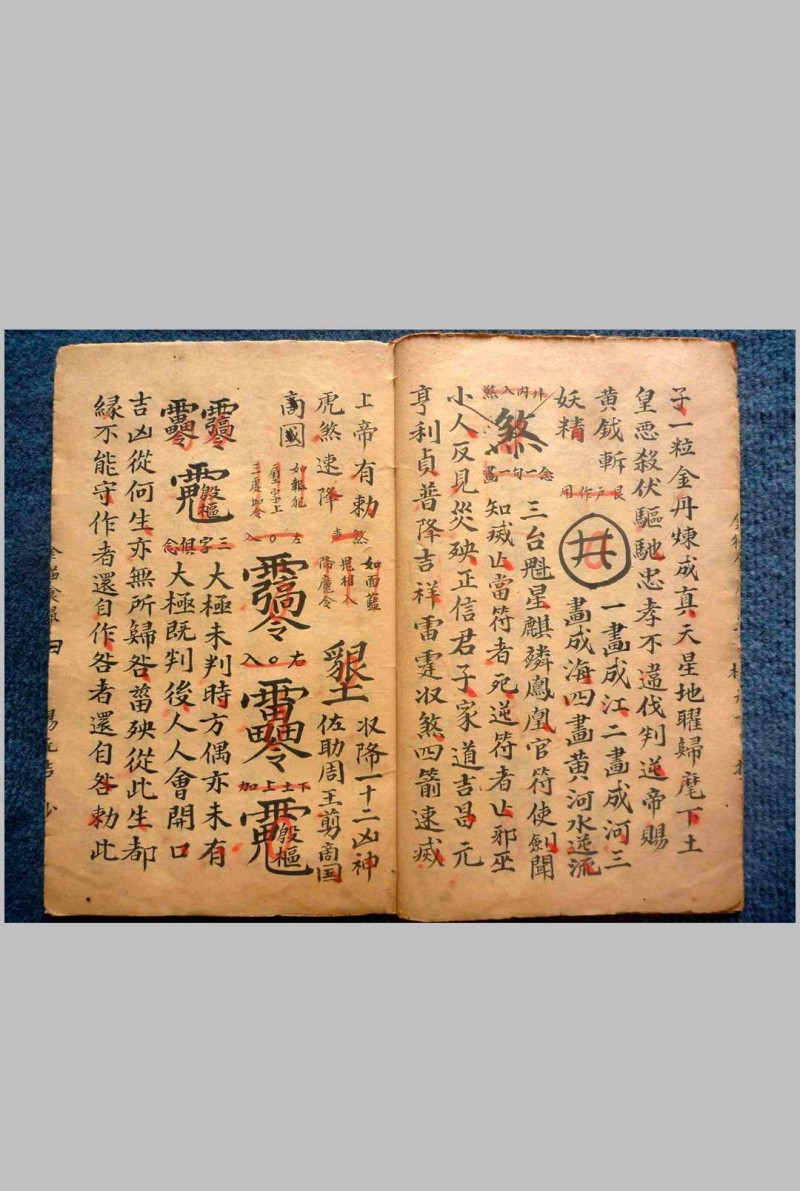 子一粒金丹煉成真天星地曜歸麾下土
皇惡殺伏驅馳忠孝不違伐判逆帝賜
黄鉞斬
妖精
艮戶作用
井
一畫成江二畫成河三
畫成海四畫黄河水逆流
井內入煞
煞
念一句一畫
三台魁星麒麟鳳凰官符使劍聞
知滅亾當符者死逆符者亾邪巫
小人反見災殃正信君子家道吉昌元
亨利貞普降吉祥雷霆収煞四箭速滅
上帝有勅
虎煞速降
煞声
如面藍
降魔令
収降一十二凶神
佐助周王剪商国
商國
左〇入
右〇入
下土上加
三字俱念
大極未判時方偶亦未有
大極既判後人人會開口
吉凶從何生亦無所歸咎菑殃從此生都
緣不能守作者還自作咎者還自咎勅此